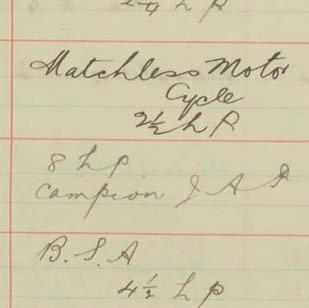 2¼ h P
Matchless Motor
Cycle
2½ h P
8 h p
Campion J A P
B.S.A
4½ h p